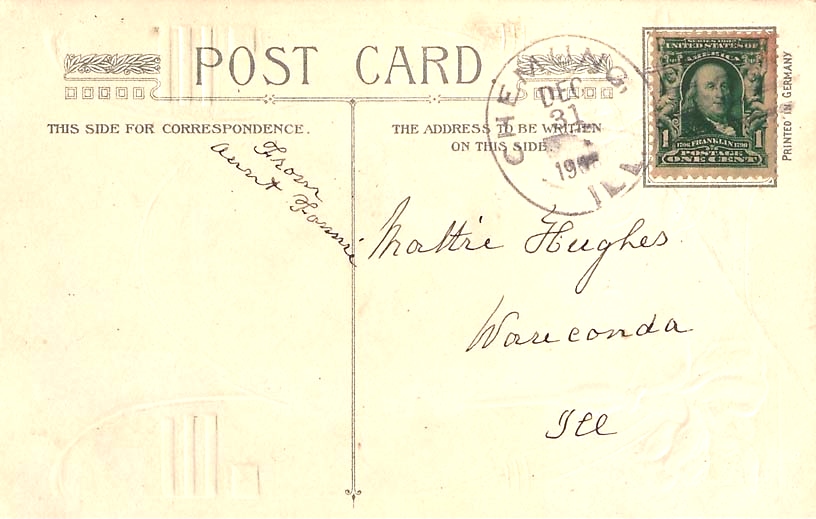 POST CARD
THIS SIDE FOR CORRESPONDENCE.
THE ADDRESS TO BE WRITTEN
ON THIS SIDE.
CHEMUNG
DEC
31
190
ILL
SERIES 1902
UNITED STATES OF
AMERICA
1 1
1706 FRANKLIN 1790
POSTAGE
ONE CENT
PRINTED IN GERMANY
From
Aunt Fannie
Mattie Hughes
Wauconda
Ill